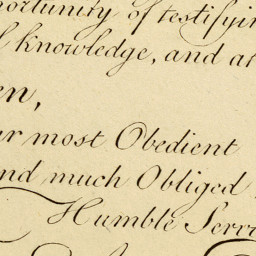 portunity of testifyin
l knowledge, and at
en,
ur most Obedient
nd much Obliged
Humble Serv